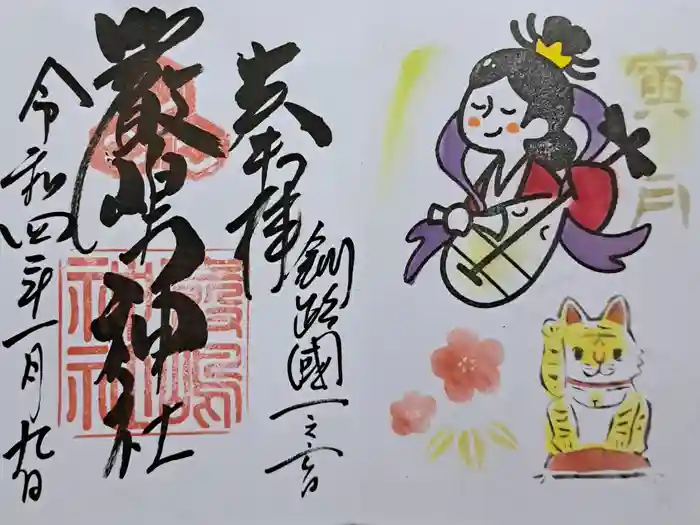 奉拝
釧路國一之宮
厳島神社
令和四年一月九日
厳島
神社
寅
月